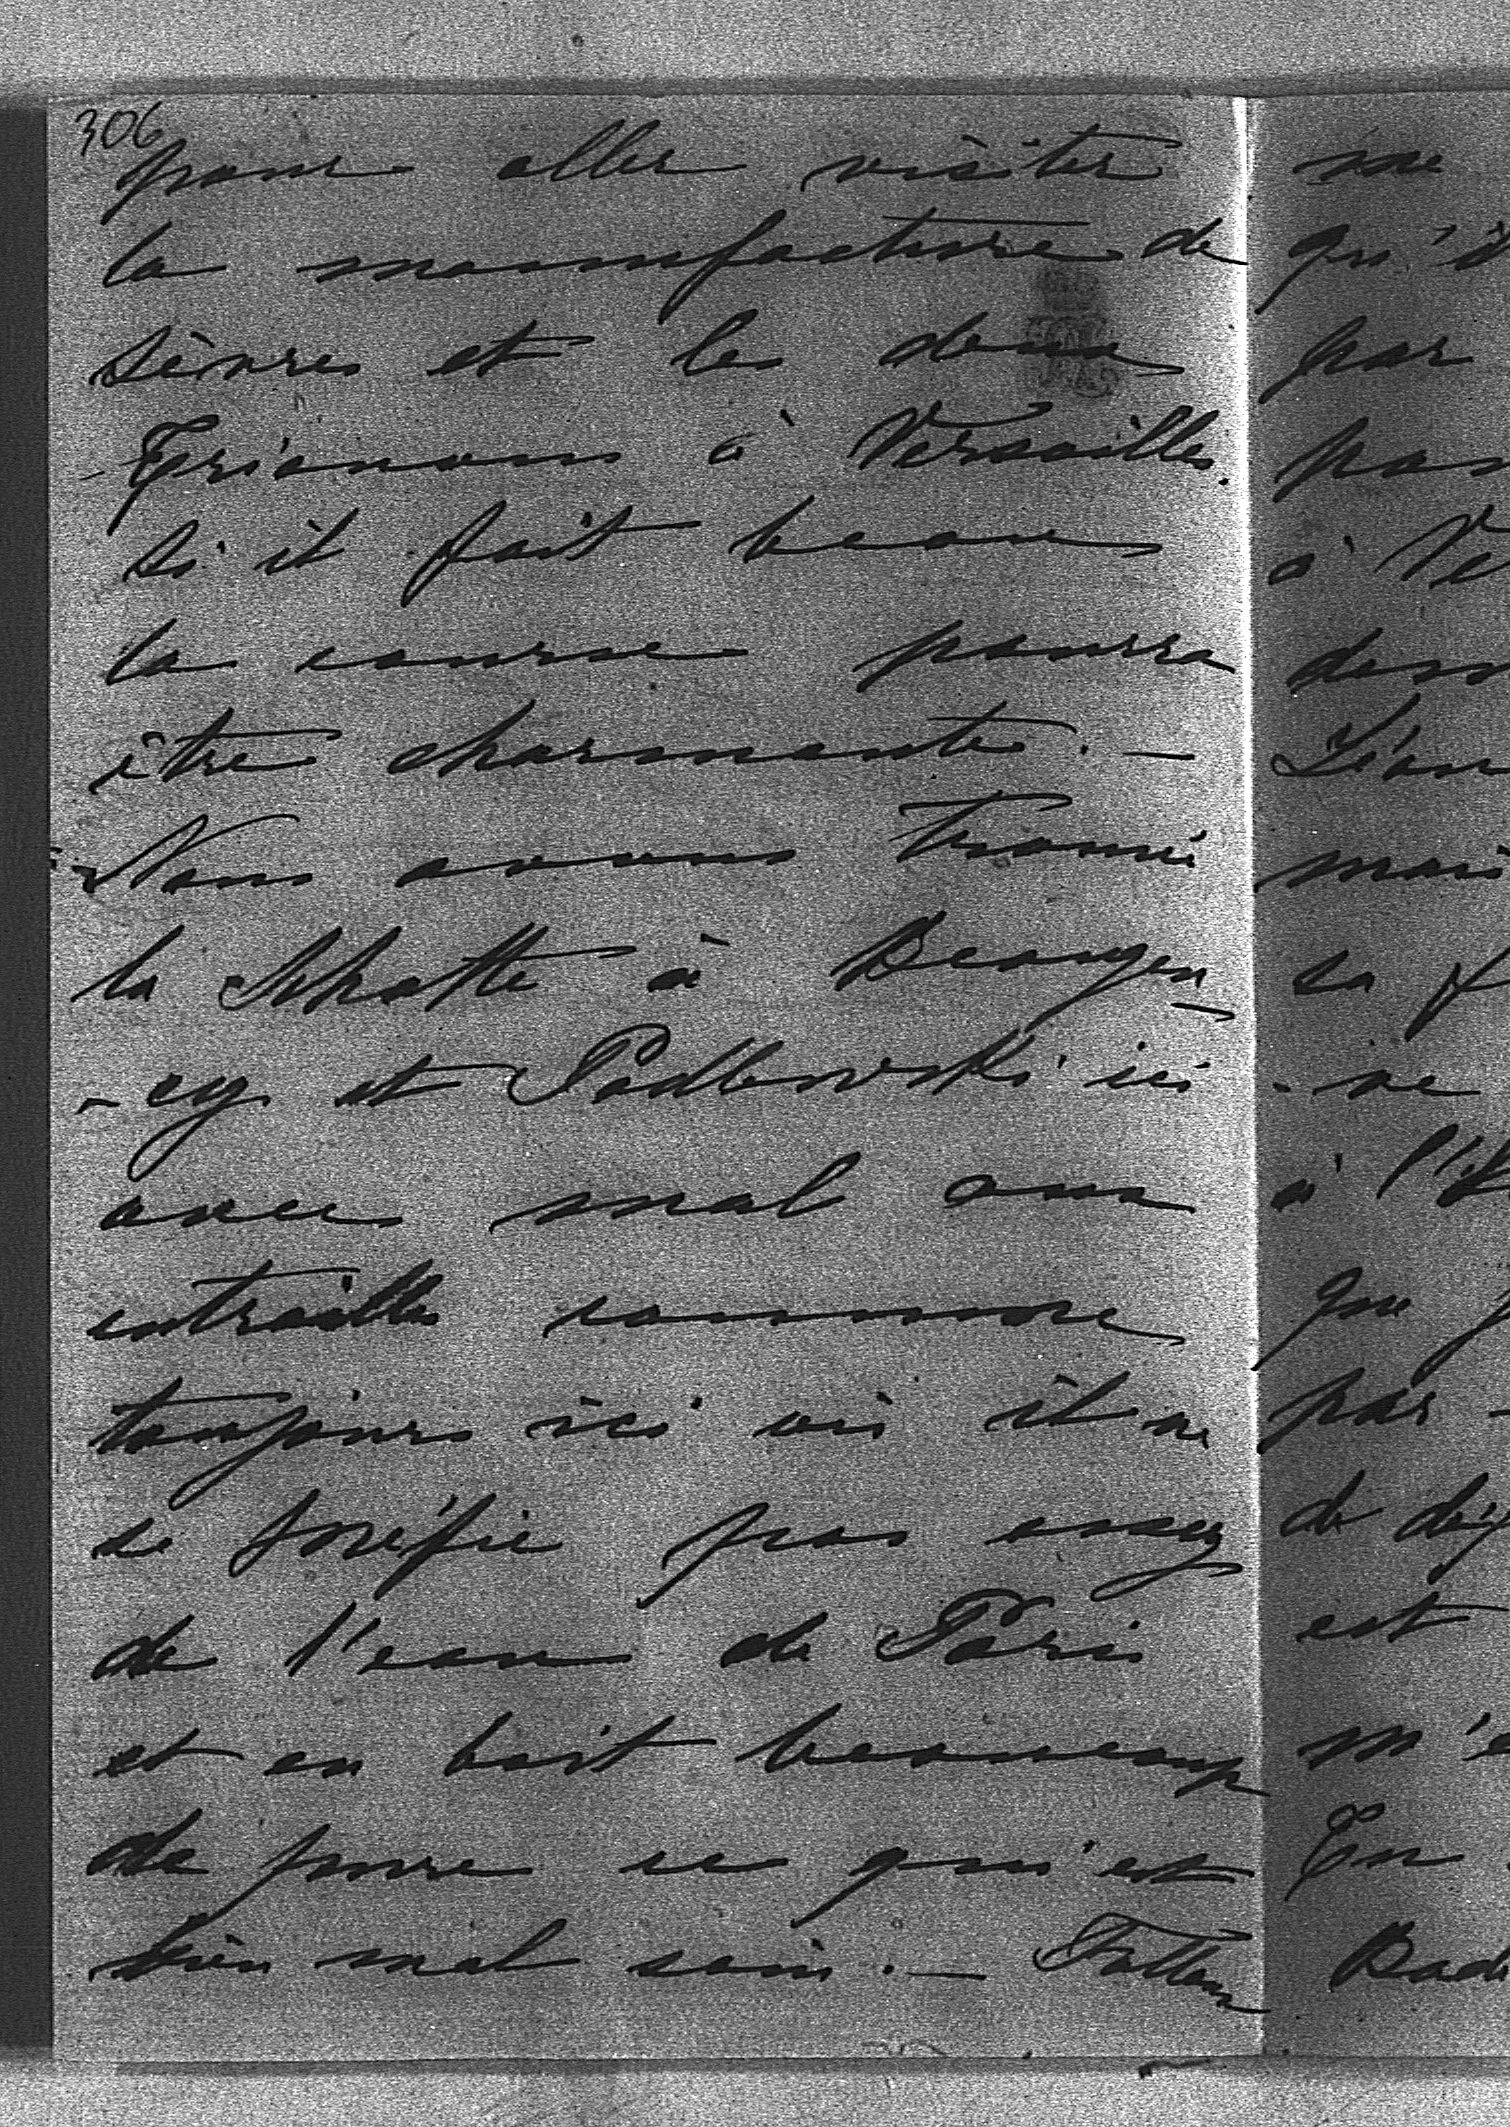 306
pour aller visiter
la manufacture de
Sèvres et les deux
Trianons à Versailles.
Si il fait beau
la course pourra
être charmante. —
Nous avons trouvé
la à Beaugen
-cy et Podlewski ici
avec mal aux
entrailles comme
toujours ici où il ne
se méfie pas assez
de l'eau de Paris
et en boit beaucoup
de pure ce qui est
bien mal sain. —
me
par
à
mais
sa
à
que
pas
de
est
En